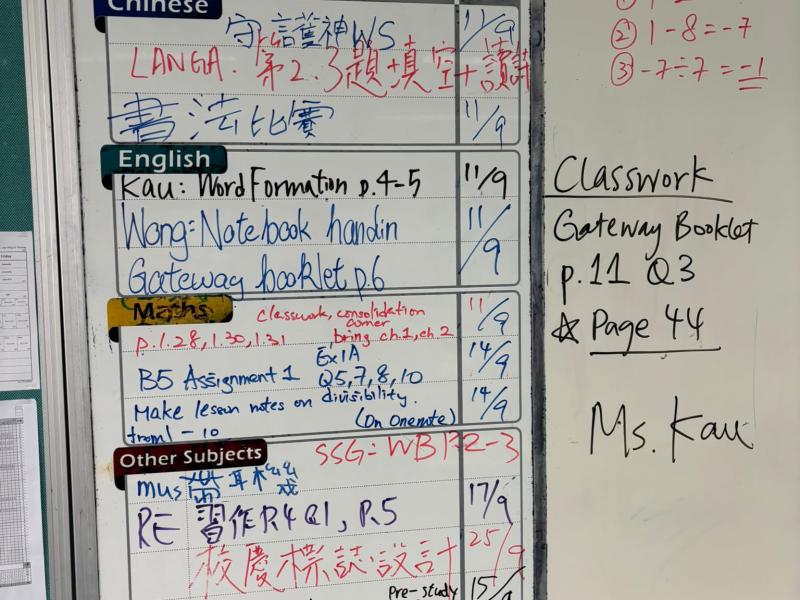 Chinese
守護神WS 11/9
LANGA. 第2.3題+填空+讀詩
書法比賽 11/9
English
Kau: Word Formation p.4-5 11/9
Wong: Notebook handin 11/9
Gateway booklet p.6
Maths
classwork, consolidation corner 11/9
p.1.28, 1.30, 1.31 bring ch.1, ch 2
B5 Assignment 1 Ex1A Q5,7,8,10 14/9
Make lesson notes on divisibility. 14/9
from 1-10 (On Onenote)
Other Subjects
SSG: WB P.2-3
mus
RE 習作P.4 Q1, P.5 17/9
校慶標誌設計 25/9
Pre-study 15/9
② 1-8=-7
③ -7÷7=-1
Classwork
Gateway Booklet
p.11 Q3
☆ Page 44
Ms. Kau